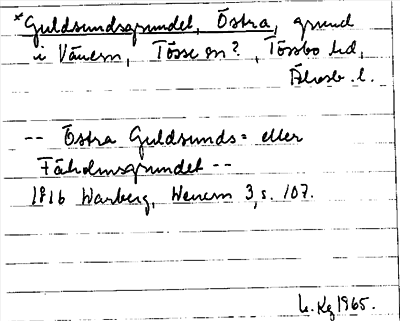 *Guldsundsgrundet, Östra, grund
i Vänern, Tösse sn?, Tössbo hd,
Älvsb. l.
-- Östra Guldsunds= eller
Fåholmsgrundet --
1816 Warberg, Wenern 3, s. 107.
L. Kg 1965.